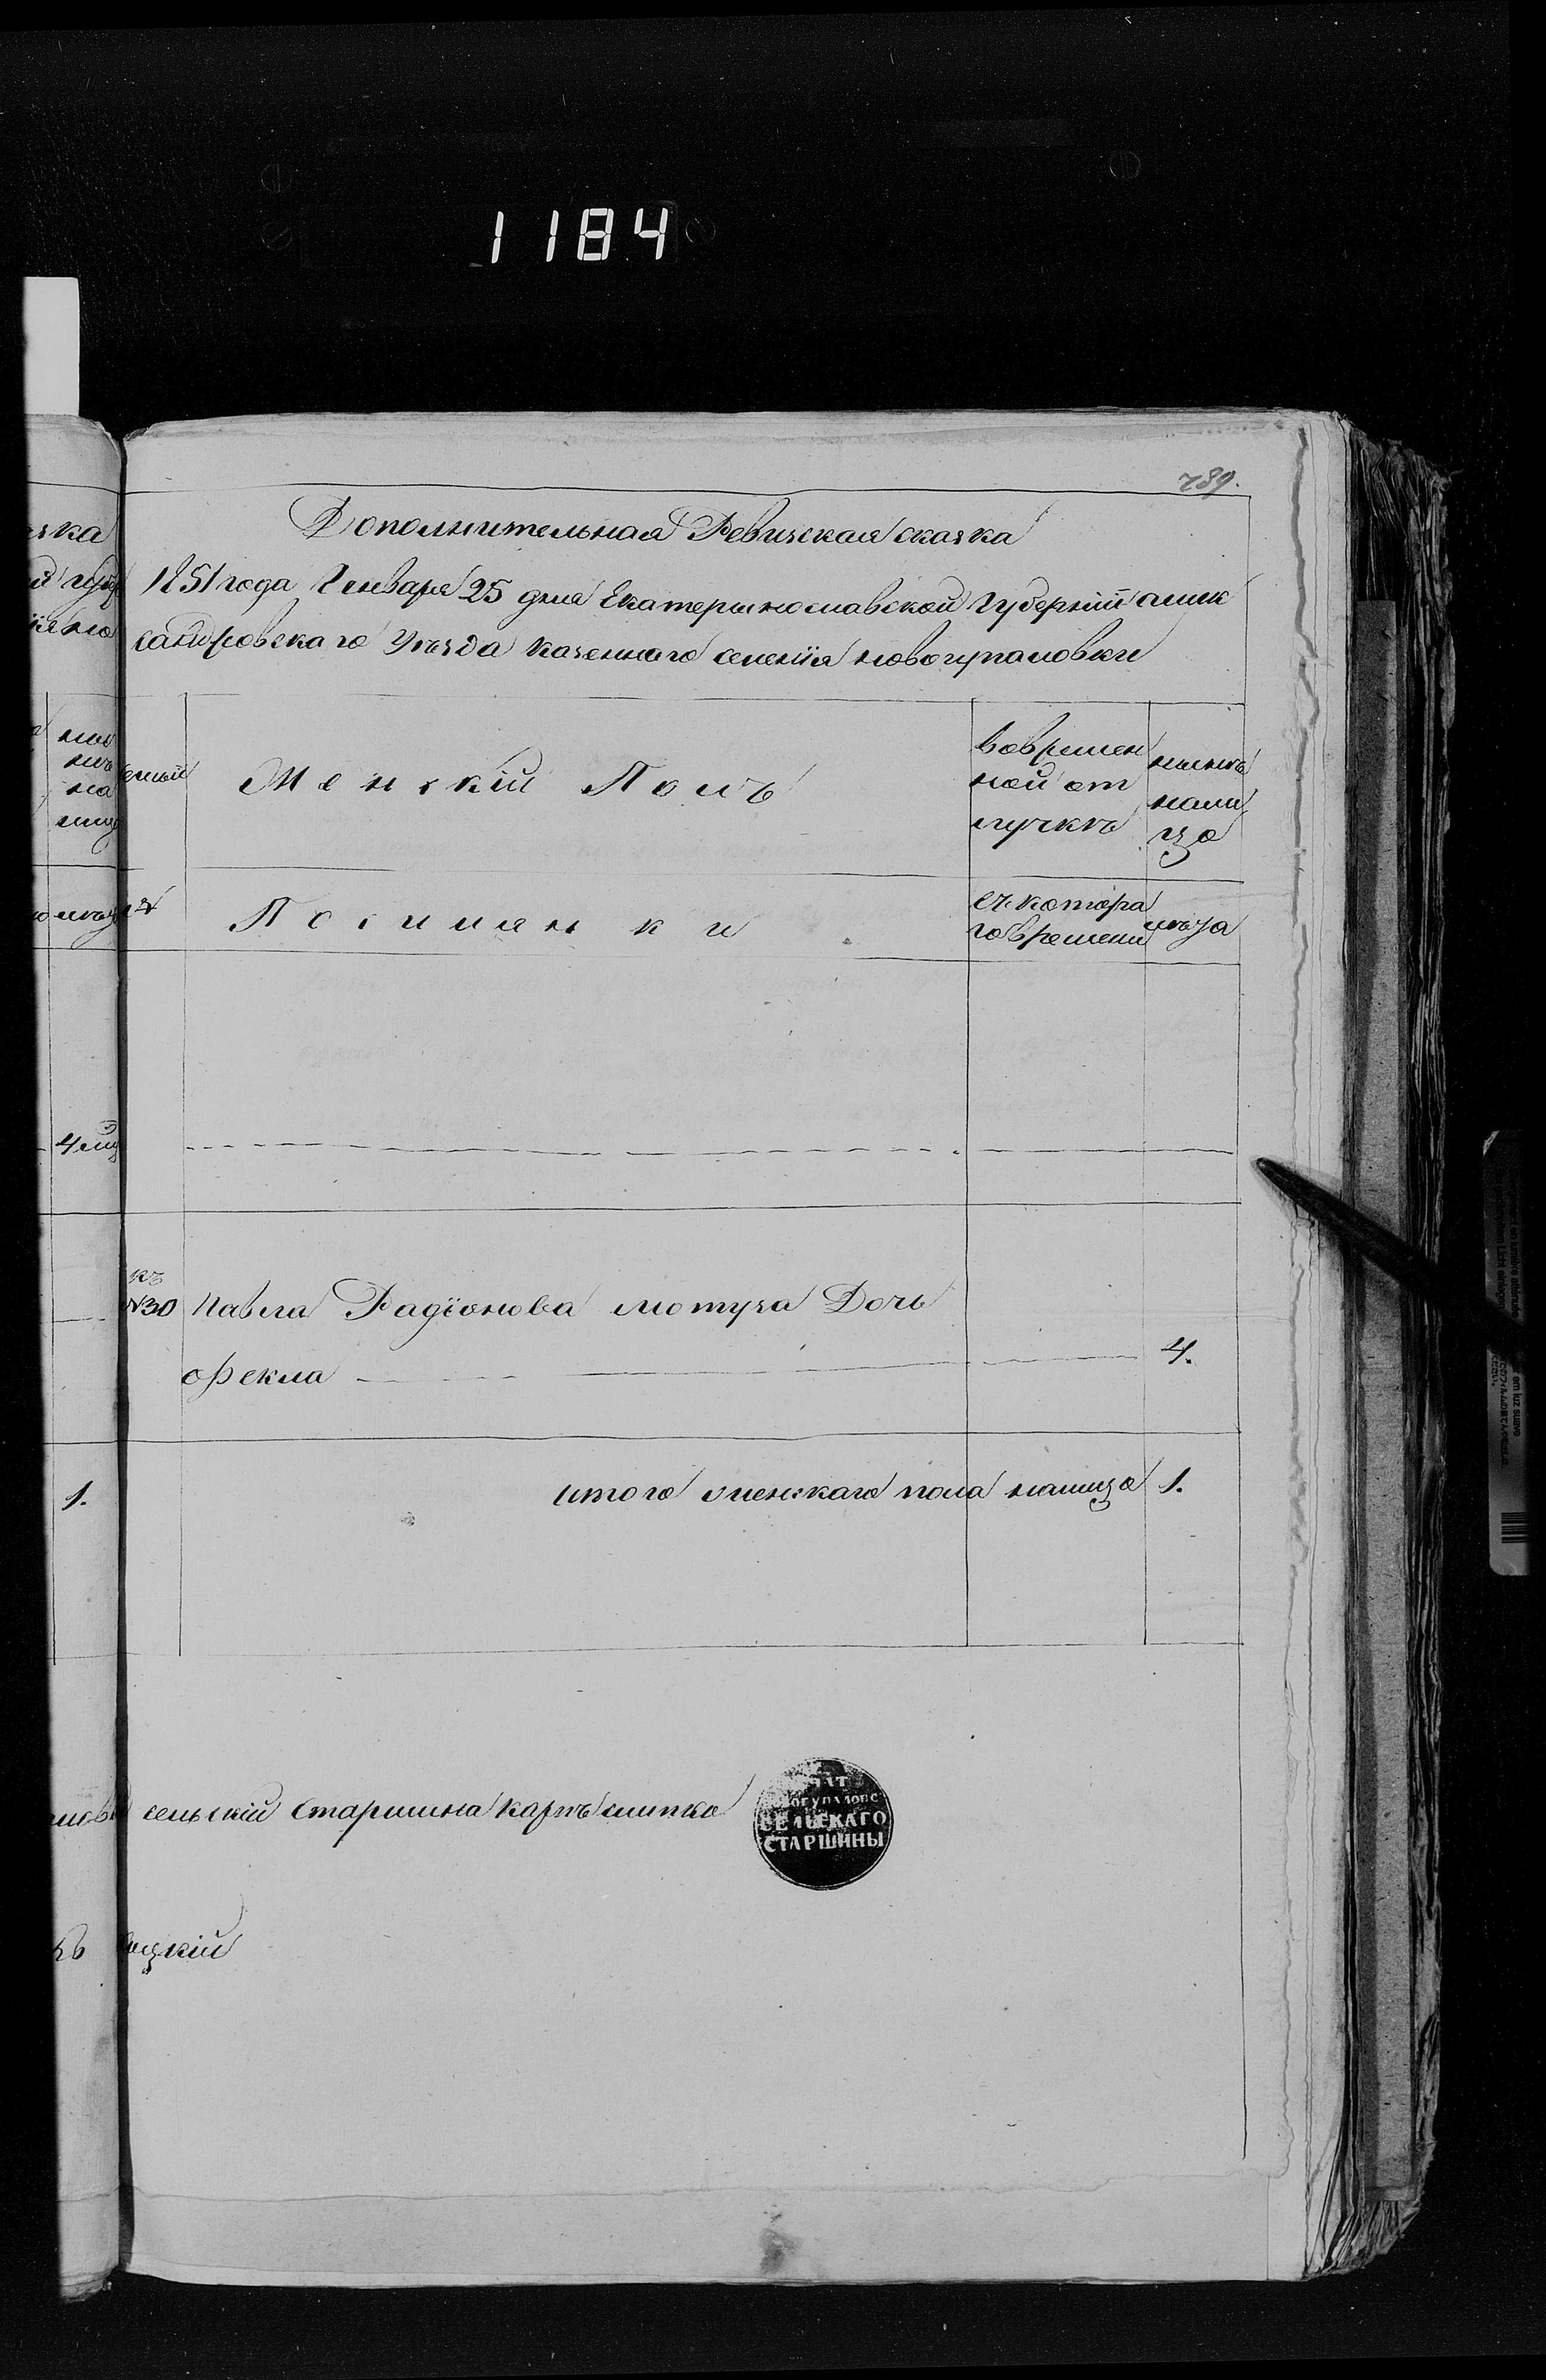 1184
789.
Дополнительная Ревизская сказка
1851 года Генваря 25 дня Екатеринославской Губернии алек
сандровскаго Уезда казеннаго селенія новогупаловки
Женскій Полъ
вовремен
ной от
лучкѣ
нынѣ
нали
цо
Поселянки
съ котора
го времени
лѣта
4
къ
№30 Павла Радіонова мотуза Дочь
Ѳекла 4.
1.
итого женскаго пола налицо 1.
сельскій Старшина карпъ липка
СЕЛЬСКАГО
СТАРШИНЫ